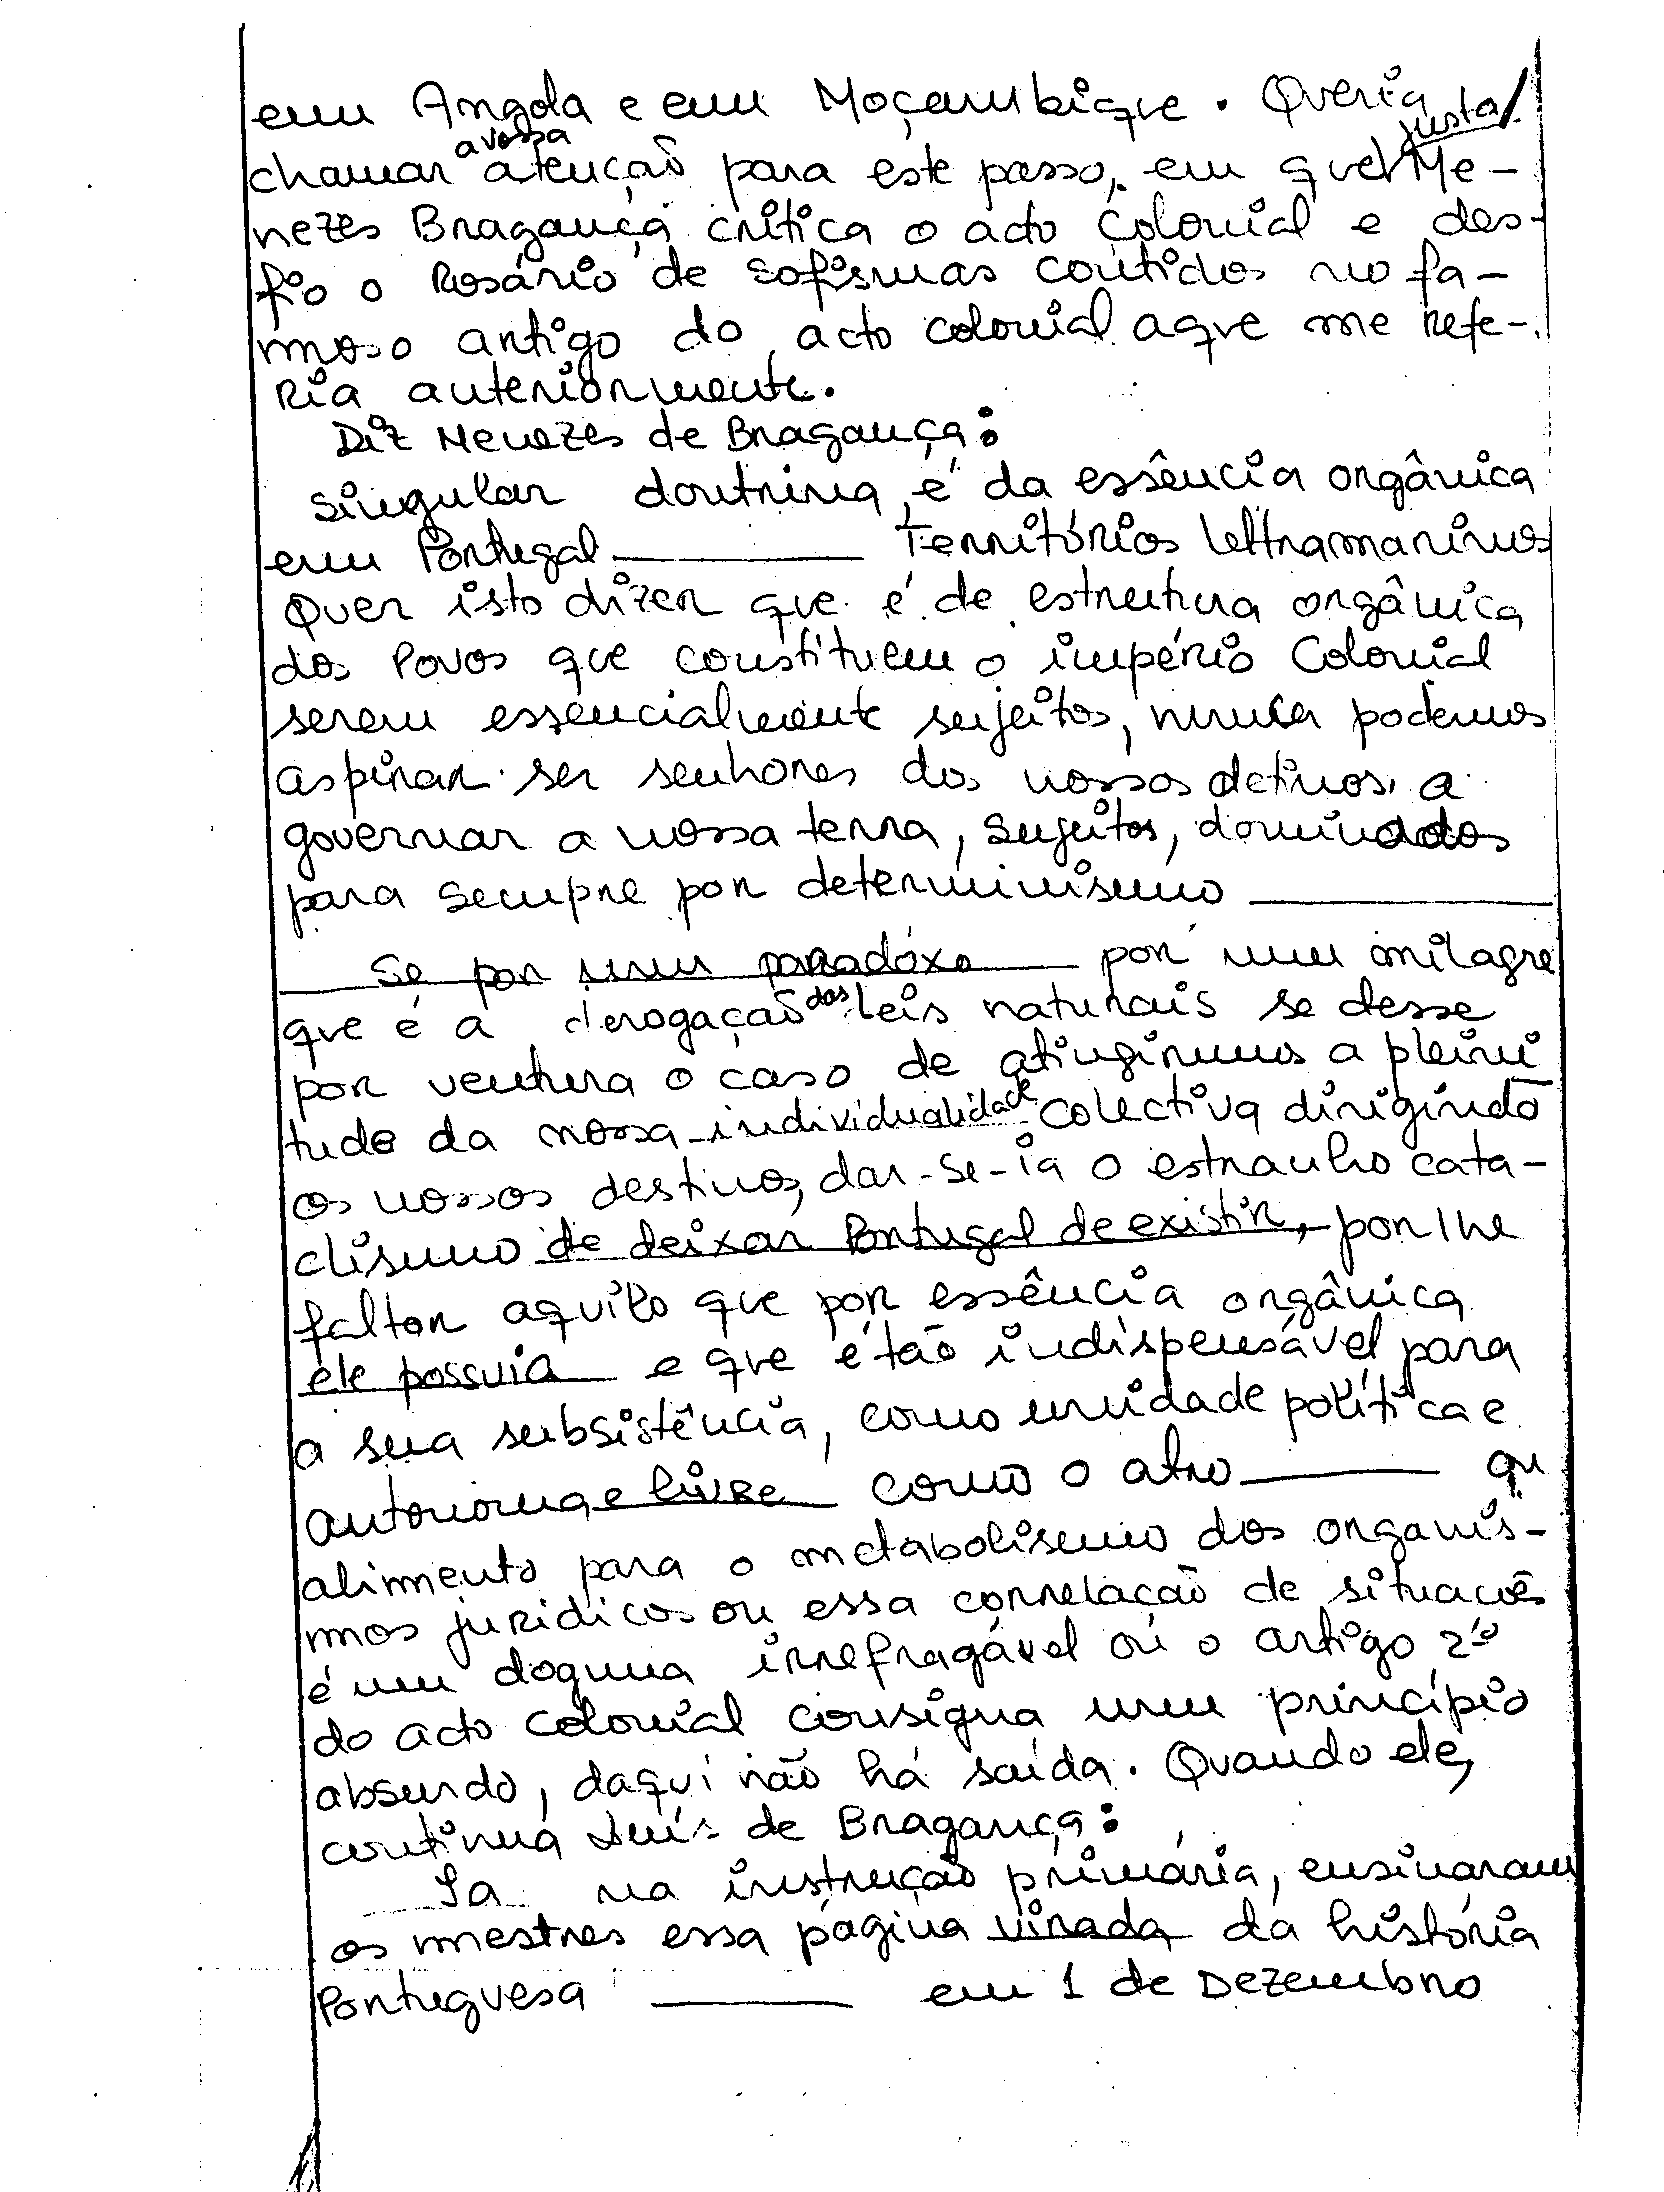 em Angola e em Moçambique. Queria
chamar a vossa atenção para este passo, em que justa/ Me-
nezes Bragança critica o acto Colonial e des-
fio o Rosário de sofismas contidos no fa-
moso antigo do acto colonial aque me refe-
ria anteriormente.
Diz Menezes de Bragança:
singular doutrina é da essência orgânica
em Portugal ______ Territórios Ultramarinos
Quer isto dizer que é de estrutura orgânica
dos Povos que constituem o império Colonial
serem essencialmente sujeitos, nunca podemos
aspirar ser senhores dos nossos detinos, a
governar a nossa terra, sujeitos, dominados
para sempre por determinismo ______
______ Se por um paradoxo ______ por um milagre
que é a derogação das leis naturais se desse
por ventura o caso de atingirmos a pleini
tude da nossa individualidade colectiva dirigindo
os nossos destinos, dar-se-ia o estranho cata-
clismo de deixar Portugal de existir, por lhe
faltar aquilo que por essência orgânica
ele possuia e que é tão indispensável para
a sua subsistência, como unidade política e
autonoma e livre como o atno ______ qu
alimento para o metabolismo dos organis-
mos juridicos ou essa correlação de situacões
é um dogma irrefragável ou o artigo 2º
do acto colonial consigna um princípio
absurdo, daqui não há saída. Quando ele,
continua Luís de Bragança:
Ja na instrução primária, ensinaram
os mestres essa página virada da história
Portuguesa ______ em 1 de Dezembro